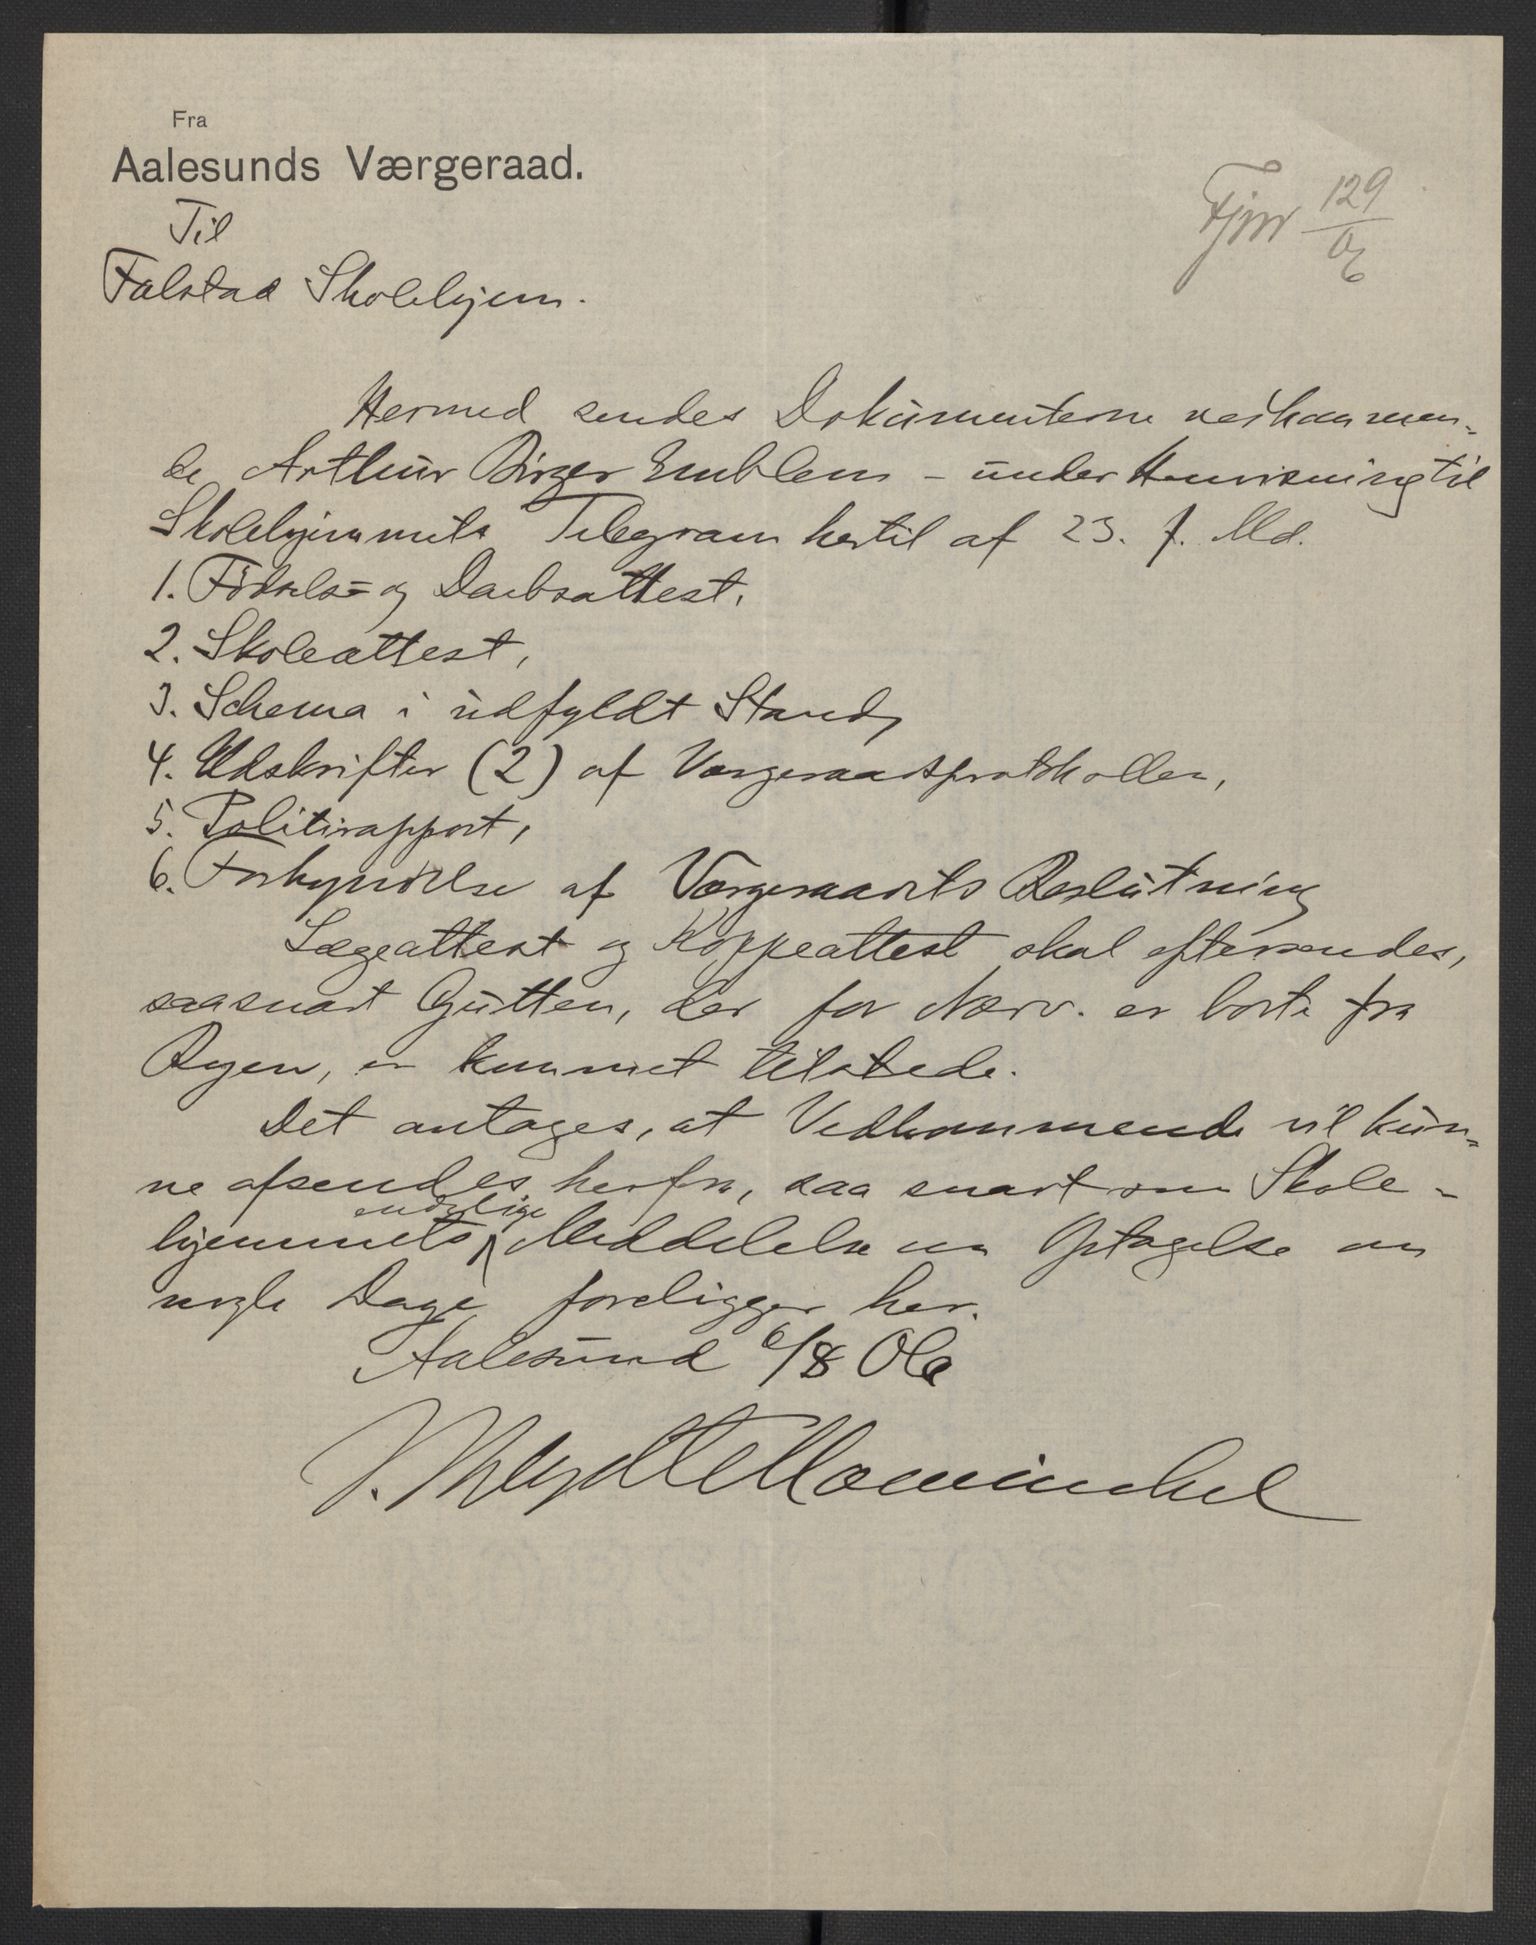 Fra
Aalesunds Værgeraad.
Til
Falstad Skolehjem.
129
06
Hermed sendes Dokumenterne vedkommen-
de Arthur Birger Emblem - under Henvisning til
Skolehjemmets Telegram hertil af 23. f. Md.
1. Fødsels- og Daabsattest,
2. Skoleattest,
3. Schema i udfyldt Stand,
4. Udskrifter (2) af Værgeraadsprotokollen,
5. Politirapport,
6. Forkyndelse af Værgeraadets Beslutning
Lægeattest og Koppeattest skal eftersendes,
saasnart Gutten, der for Nærv. er borte fra
Byen, er kommet tilstede.
Det antages, at Vedkommende vil kun-
ne afsendes herfra, saa snart som Skole-
hjemmets endelige Meddelelse om Optagelse om
nogle Dage foreligger her.
Aalesund 6/8 06